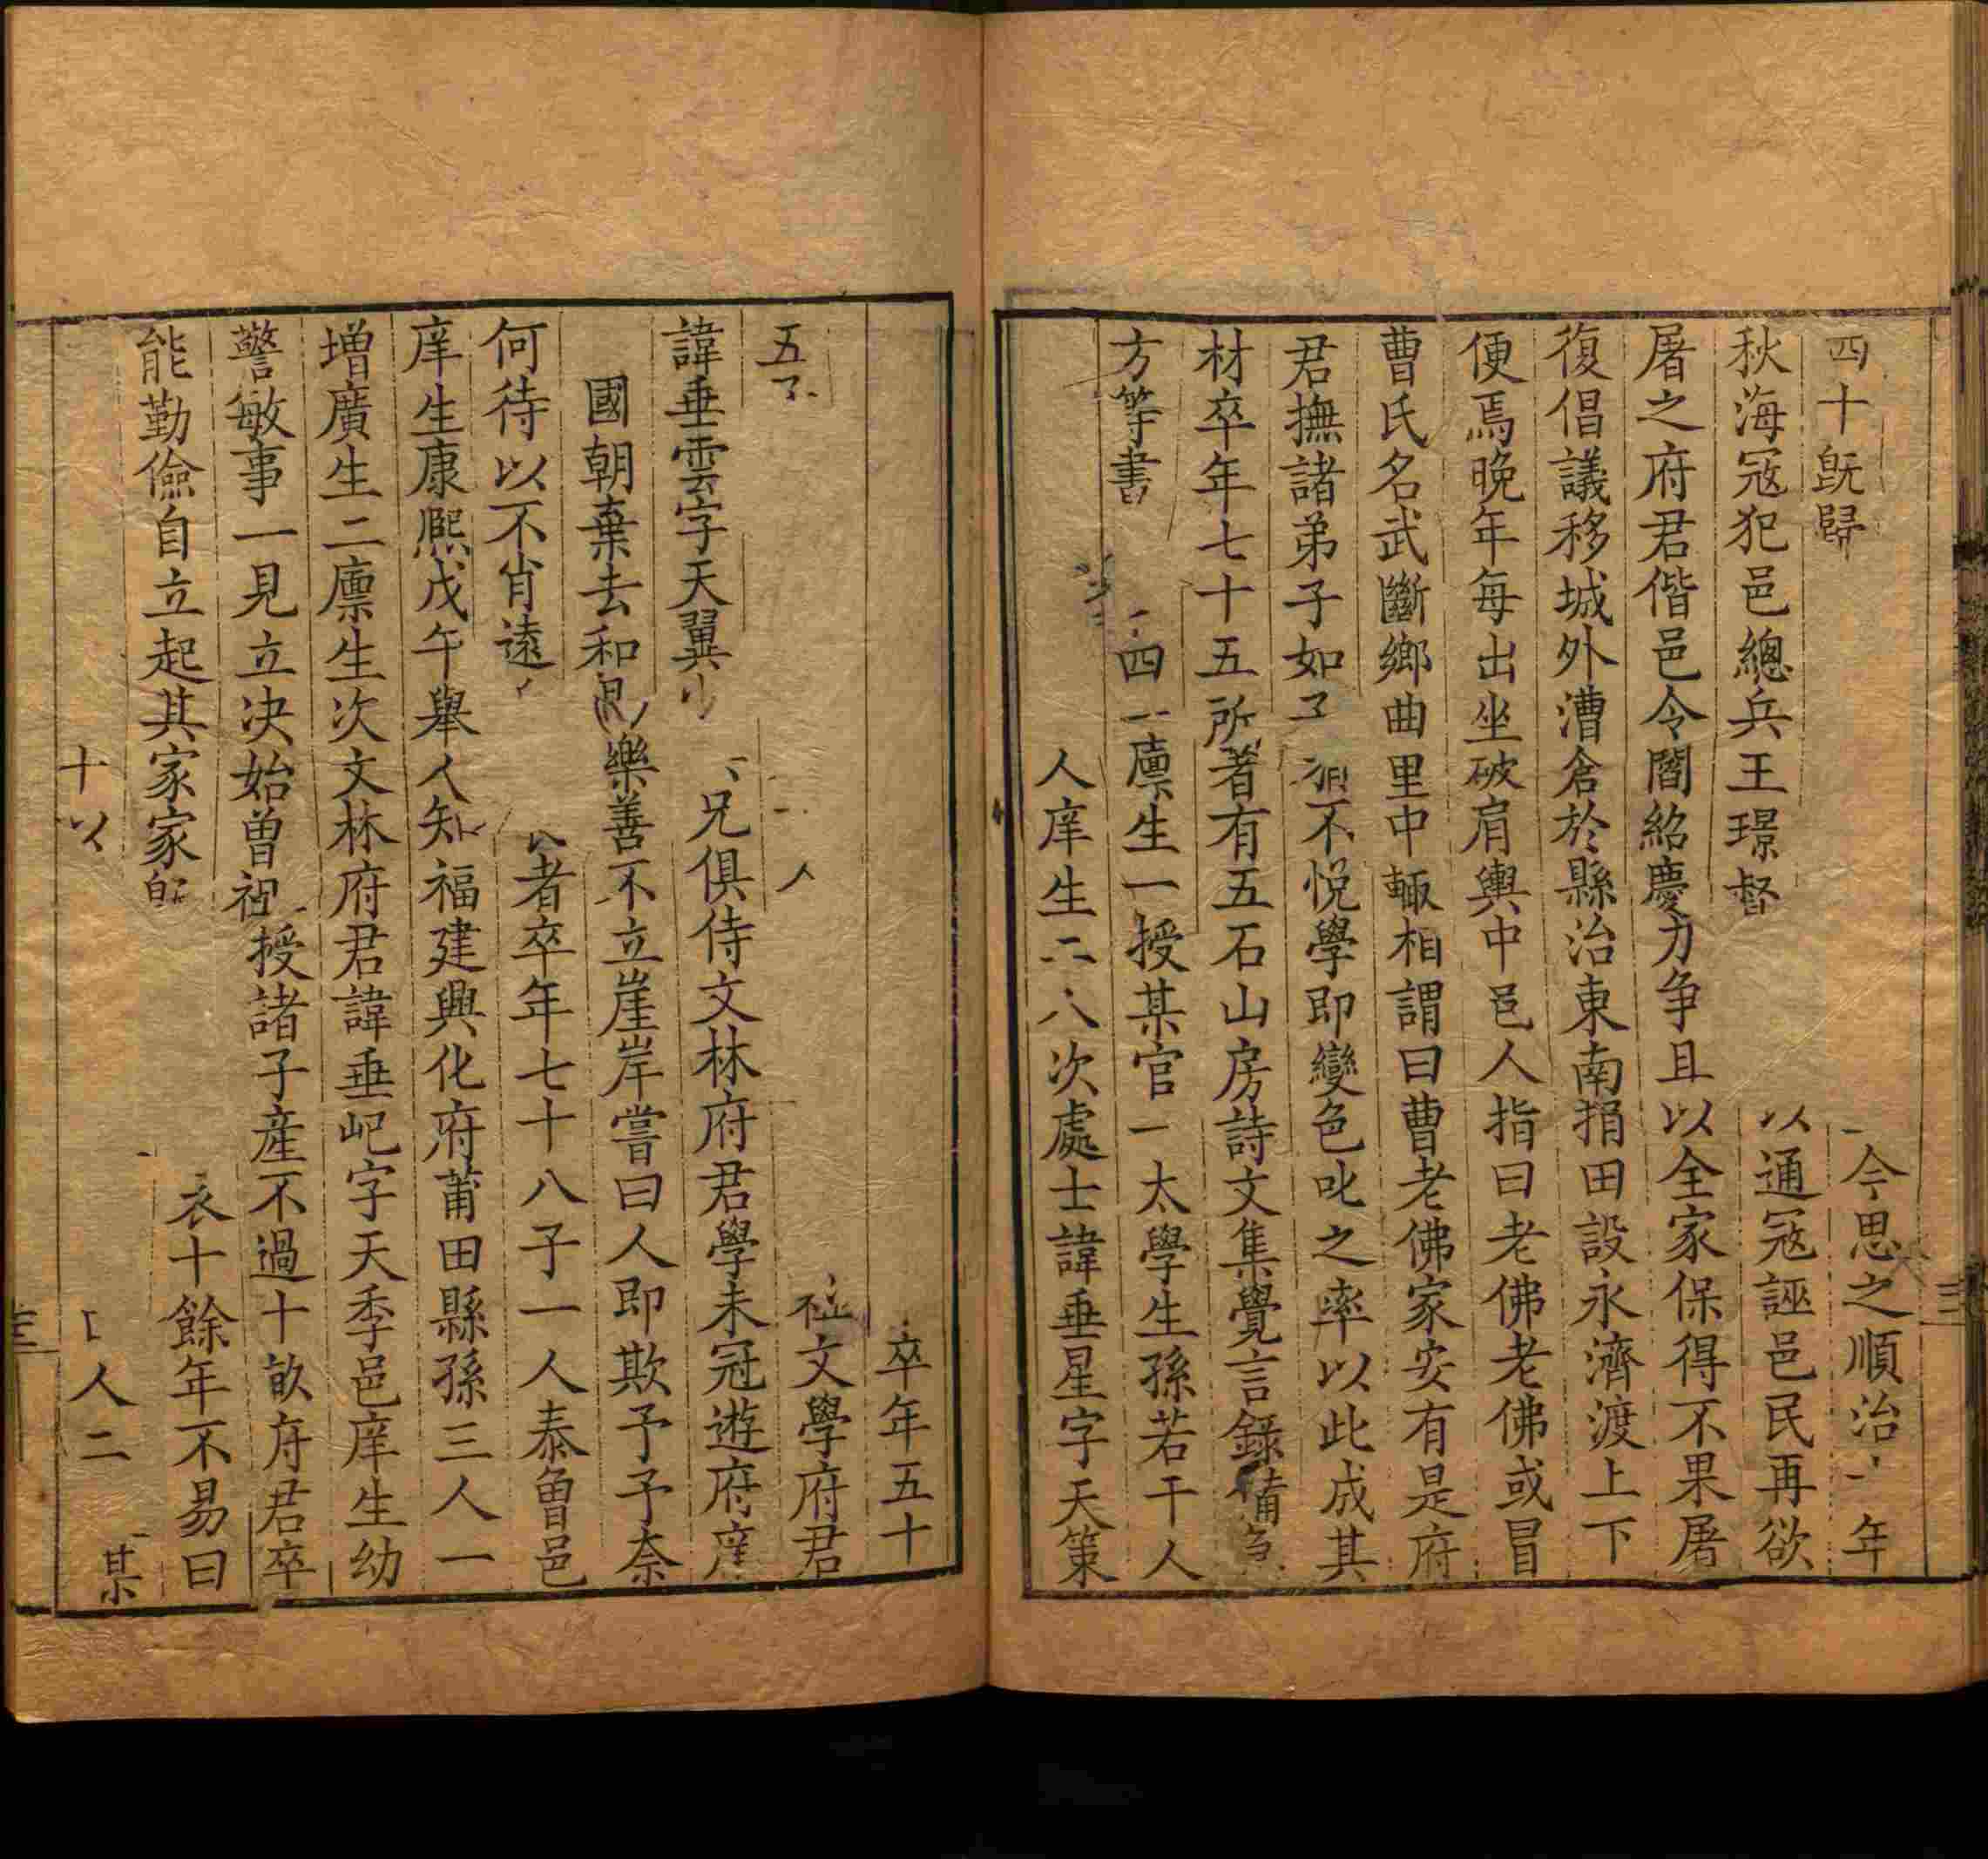 四十旣歸今思之順治年
秋海冦犯邑總兵王璟督以通冦誣邑民再欲
屠之府君偕邑令閻紹慶力争且以全家保得不果屠
復倡議移城外漕倉於縣治東南捐田設永濟渡上下
便焉晚年每出坐破肩輿中邑人指曰老佛老佛或冒
曹氏名武斷鄉曲里中輙相謂曰曹老佛家安有是府
君撫諸弟子如不悅學即變色叱之率以此成其
材卒年七十五所著有五石山房詩文集覺言錄備
方等書四一廪生一授某官一太學生孫若干人
人庠生二八次處士諱垂星字天策
卒年五十
五文學府君
諱垂雲字天翼兄俱侍文林府君學未冠遊府庠
國朝棄去和樂善不立崖岸嘗曰人即欺予予奈
何待以不肖遠者卒年七十八子一人泰曾邑
庠生康熙戊午舉人知福建興化府莆田縣孫三人一
增廣生二廪生次文林府君諱垂屺字天季邑庠生幼
警敏事一見立决始曾祖授諸子產不過十畝府君卒
能勤儉自立起其家家衣十餘年不易曰
十以人二某